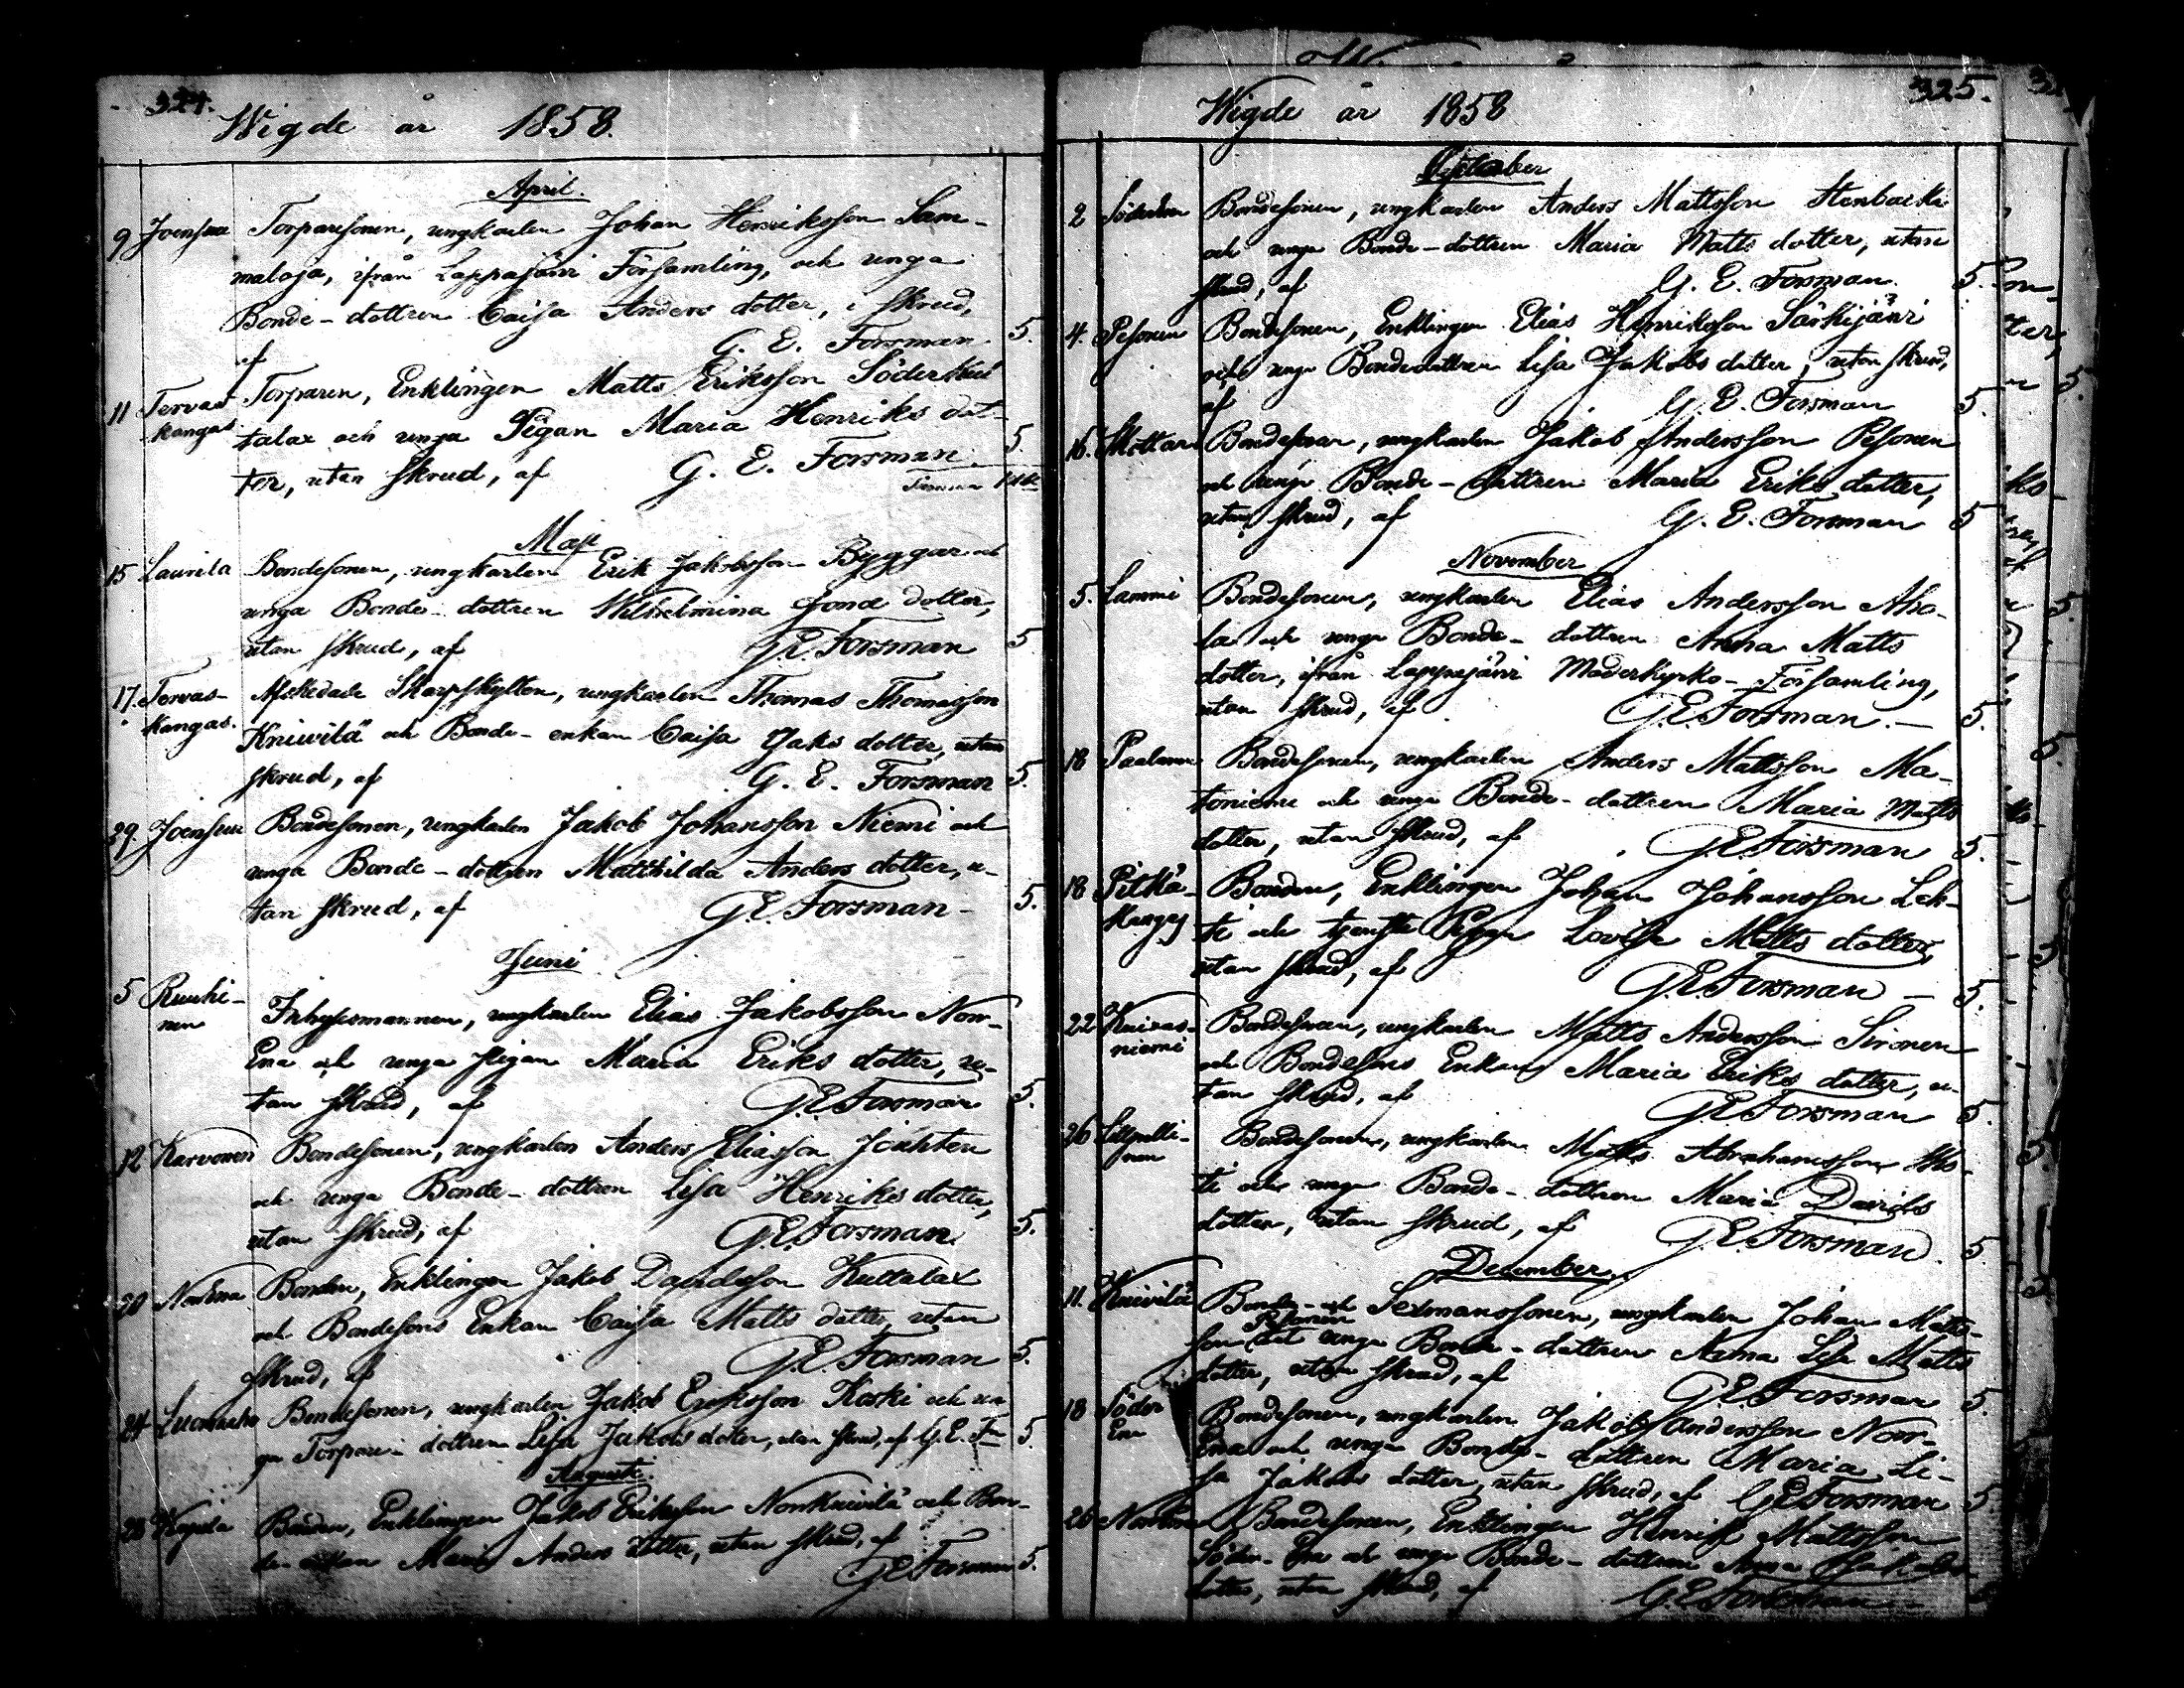 324.
Wigde år 1858.
April.
9 Joensuu Torparesonen, ungkarlen Johan Henriksson Sam-
maloja, ifrån Lappajärvi Församling, och unga
Bonde-dottren Caisa Anders dotter, i skrud,
af G. E. Forsman. 5.
11 Tervas- Torparen, Enklingen Matts Eriksson Söderkul
kangas talax och unga Pigan Maria Henriks dot-
ter, utan skrud, af G. E. Forsman. 5
Maji
15 Laurila Bondesonen, ungkarlen Erik Jakobsson Byggar och
unga Bonde-dottren Wilhelmina Jonæ dotter,
utan skrud, af G. E. Forsman 5
17. Tervas- Afskedade Skarpskytten, ungkarlen Thomas Thomasson
kangas. Kniivilä och Bonde-enkan Caisa Jaks dotter, utan
skrud, af G. E. Forsman 5.
29. Joensuu Bondesonen, ungkarlen Jakob Johansson Niemi och
unga Bonde-dottren Matthilda Anders dotter, u-
tan skrud, af G. E. Forsman - 5.
Juni
5 Ruuhi- Inhysesmannen, ungkarlen Elias Jakobsson Norr-
nen Ena och unga pigan Maria Eriks dotter, u-
tan skrud, af G. E. Forsman 5.
12 Karvonen Bondesonen, ungkarlen Anders Eliasson
och unga Bonde-dottren Lisa Henriks dotter,
utan skrud, af G. E. Forsman. 5.
20 Norrena Bonden, Enklingen Jakob Davidsson Kuttalax
och Bondesons Enkan Caisa Matts dotter, utan
skrud, af G. E. Forsman 5.
24 Luomaaho Bondesonen, ungkarlen Jakob Eriksson Koski och un
ga Torpare-dottren Lisa Jakobs dotter, utan skrud, af G. E. Fn 5.
Augusti.
28 Bonden, Enklingen Jakob Eriksson Norrkniivilä och Bon-
de enkan Maria Anders dotter, utan skrud, af
G. E. Forsman 5.
325.
Wigde år 1858
2 Bondesonen, ungkarlen Anders Mattsson Stenbacka
och unga Bonde-dottren Maria Matts dotter, utan
skrud, af G. E. Forsman. 5.
4. Pesonen Bondesonen, Enklingen Elias Henriksson Särkijärvi
och unga Bondedottren Lisa Jakobs dotter, utan skrud,
af G. E. Forsman 5.
16. Skottar Bondesonen, ungkarlen Jakob Andersson Pesonen
och unga Bonde-dottren Maria Eriks dotter,
utan skrud, af G. E. Forsman 5
November
5. Lammi Bondesonen, ungkarlen Elias Andersson Aho-
la och unga Bonde-dottren Anna Matts
dotter, ifrån Lappajärvi Moderkyrko-Församling,
utan skrud, af G. E. Forsman. - 5.
18 Paalanen Bondesonen, ungkarlen Anders Mattsson Ma-
toniemi och unga Bonde-dottren Maria Matts
dotter, utan skrud, af G. E. Forsman 5.
18 Pitkä- Bonden, Enklingen Johan Johansson Leh-
kangas ti och tjenste Pigan Lovisa Matts dotter,
utan skrud, af G. E. Forsman - 5.
22 Kuivas- Bondesonen, ungkarlen Matts Andersson Sironen
niemi och Bondesons Enkan Maria Eriks dotter, u-
tan skrud, af G. E. Forsman 5.
26 Bondesonen, ungkarlen Matts Abrahamsson
ti och unga Bonde-dottren Maria Davids
dotter, utan skrud, af G. E. Forsman. 5
December
11. Kniivilä Bonde-och Sexmanssonen, ungkarlen Johan Matts-
son och unga Bonde-dottren Anna Lisa Matts
dotter, utan skrud, af G. E. Forsman 5.
18 Söder Bondesonen, ungkarlen Jakob Andersson Norr-
Ena Ena och unga Bonde-dottren Maria Li-
sa Jakobs dotter, utan skrud, af G. E. Forsman 5.
26 Norrena Bondesonen, Enklingen Henrik Mattsson
Söder-Ena och unga Bonde-dottren Anna Jakobs
dotter, utan skrud, af G. E. Forsman